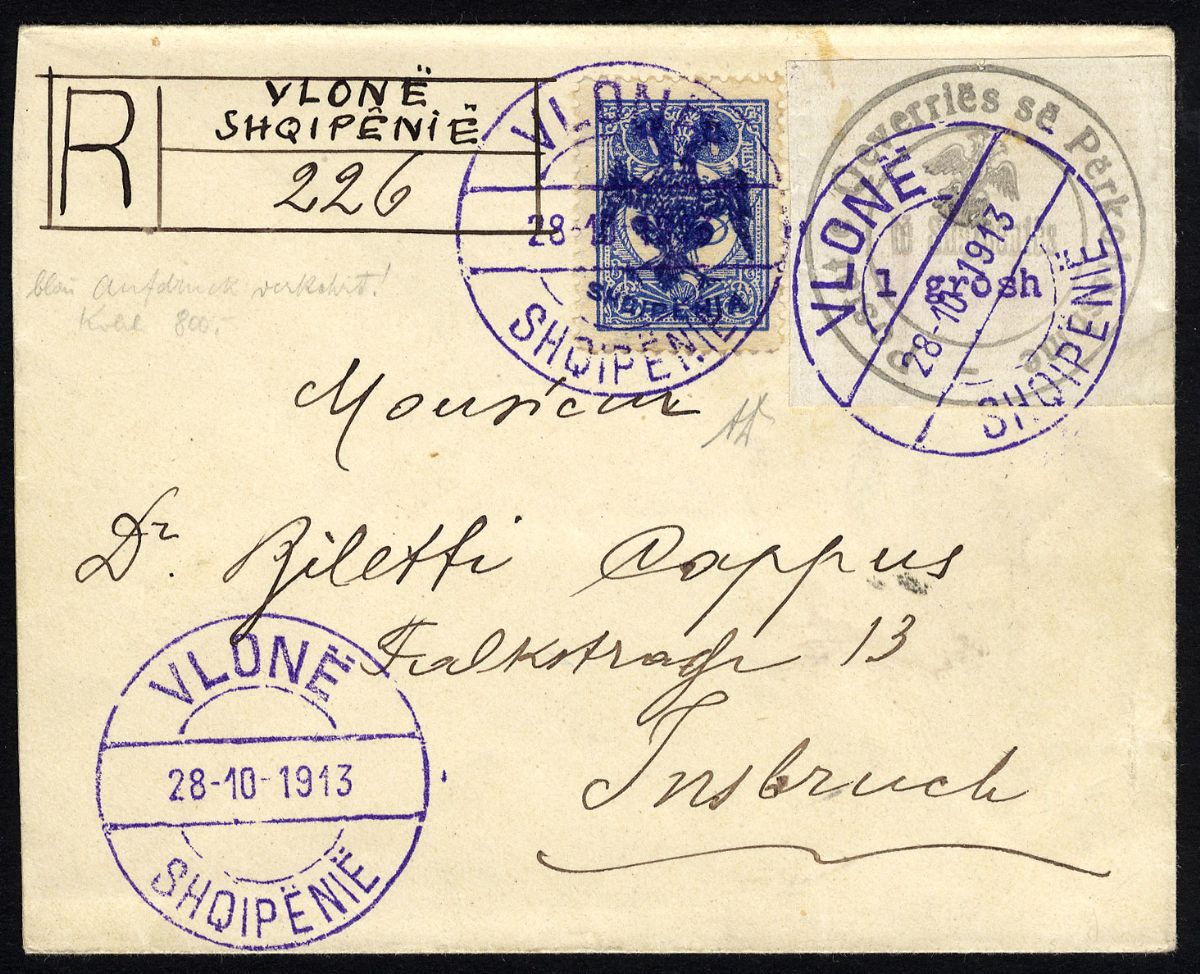 R
VLONË
SHQIPÊNIË
226
VLONË
28-1
SHQIPËNIË
SHQIPËNIA
Përko
VLONË
1 grosh
28-10-1913
SHQIPËNIË
blau Aufdruck verkehrt!
800,-
Monsieur
Dr. Biletti Cappus
13
Insbruck
VLONË
28-10-1913
SHQIPËNIË